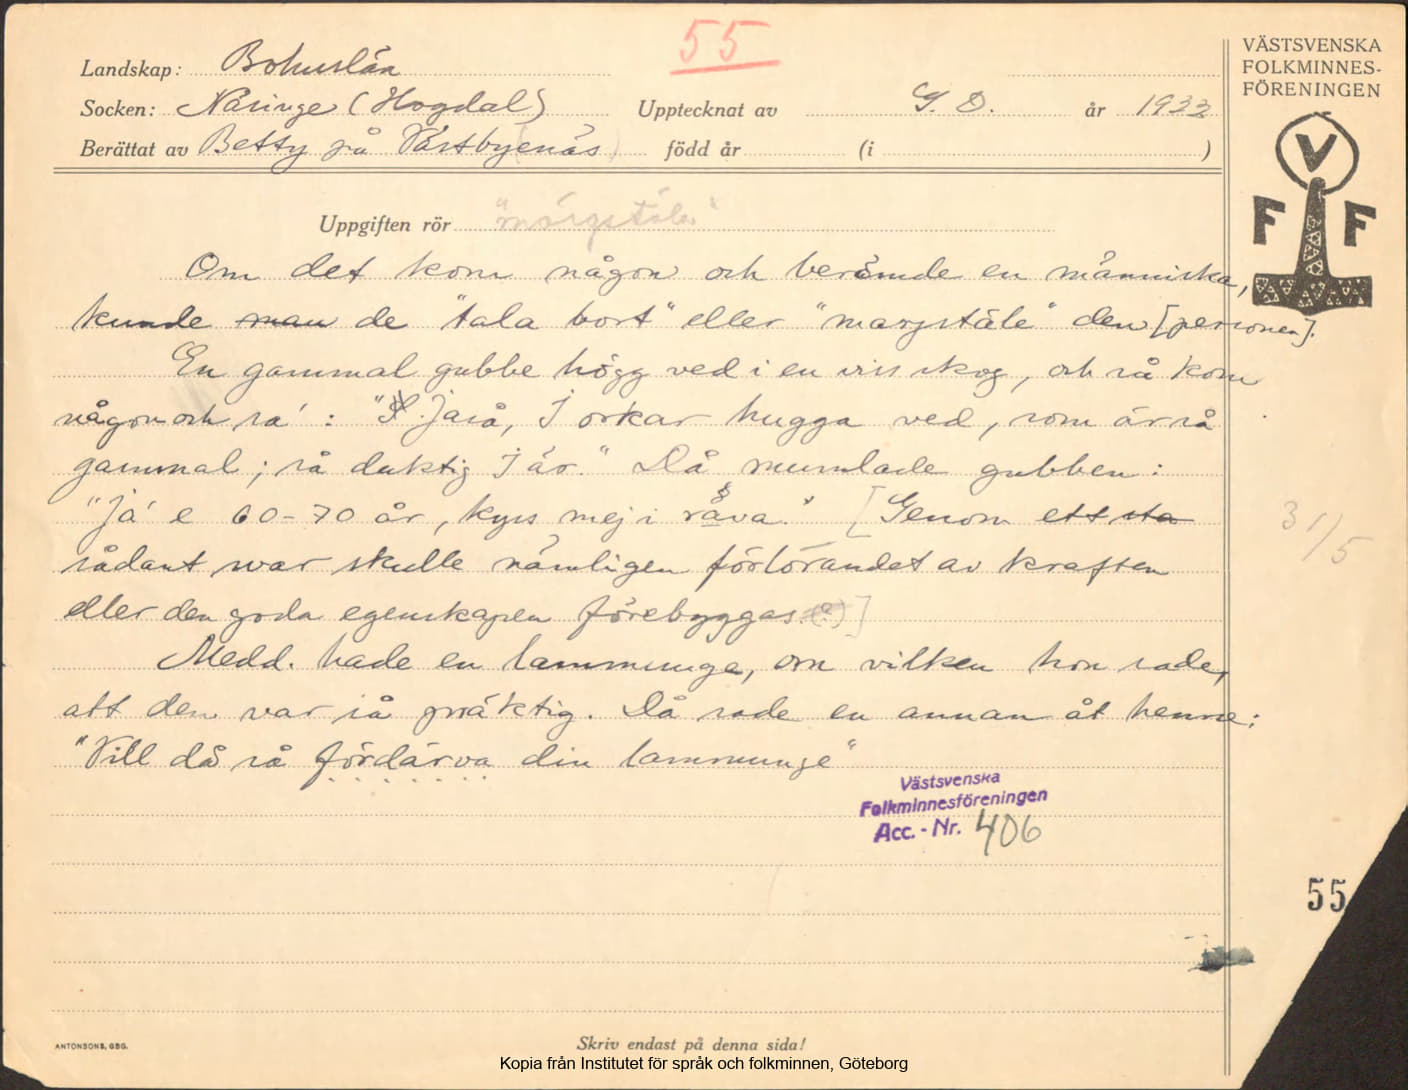 55
VÄSTSVENSKA
FOLKMINNES-
FÖRENINGEN
Landskap: Bohuslän
Socken: Näsinge (Hogdal) Upptecknat av G. D. år 1933
Berättat av Betty på Västbyenäs född år (i )
V
F F
Uppgiften rör "märgstäla"
Om det kom någon och berömde en människa,
kunde man de "tala bort" eller "margstäle" den [personen].
En gammal gubbe högg ved i en viss skog, och så kom
någon och sa': "Jaså, I orkar hugga ved, som är så
gammal; så duktig I är." Då mumlade gubben:
"Ja' e 60-70 år, kyss mej i råva." [Genom ett sta
sådant svar skulle nämligen förlörandet av kraften
eller den goda egenskapen förebyggas. (?)]
Medd. hade en lammunge, om vilken hon sade,
att den var så präktig. Då sade en annan åt henne:
"Vill då så fördärva din lammunge"
31/5
Västsvenska
Folkminnesföreningen
Acc. - Nr. 406
55
ANTONSONS, GBG.
Skriv endast på denna sida!
Kopia från Institutet för språk och folkminnen, Göteborg